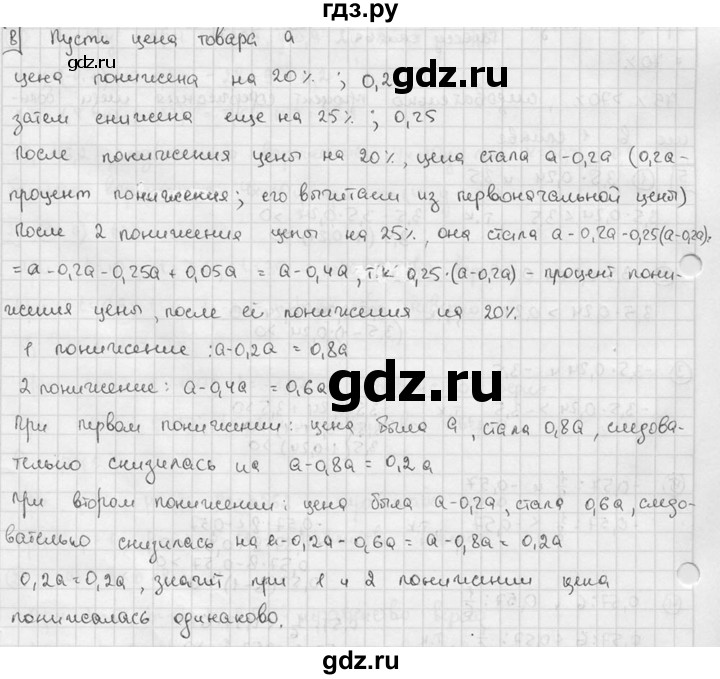 гдз.ру
8) Пусть цена товара a
цена понижена на 20% ; 0,2
gdz.ru
gdz.ru
затем снижена еще на 25% ; 0,25
После понижения цены на 20%, цена стала a-0,2a (0,2a-
процент понижения; его вычитаем из первоначальной цены)
После 2 понижения цены на 25%, она стала a-0,2a-0,25(a-0,2a)=
=a-0,2a-0,25a+0,05a = a-0,4a, т.к. 0,25·(a-0,2a) - процент пони-
жения цены, после её понижения на 20%.
1 понижение: a-0,2a = 0,8a
2 понижение: a-0,4a = 0,6a
gdz.ru
При первом понижении: цена была a, стала 0,8a, следова-
тельно снизилась на a-0,8a=0,2a
При втором понижении: цена была a-0,2a, стала 0,6a, следо-
вательно снизилась на a-0,2a-0,6a = a-0,8a = 0,2a
0,2a=0,2a, значит при 1 и 2 понижении цена
понижалась одинаково.
gdz.ru